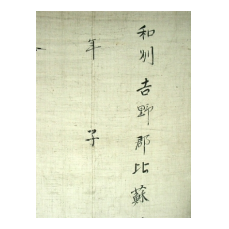 和州吉野郡比蘇
年子